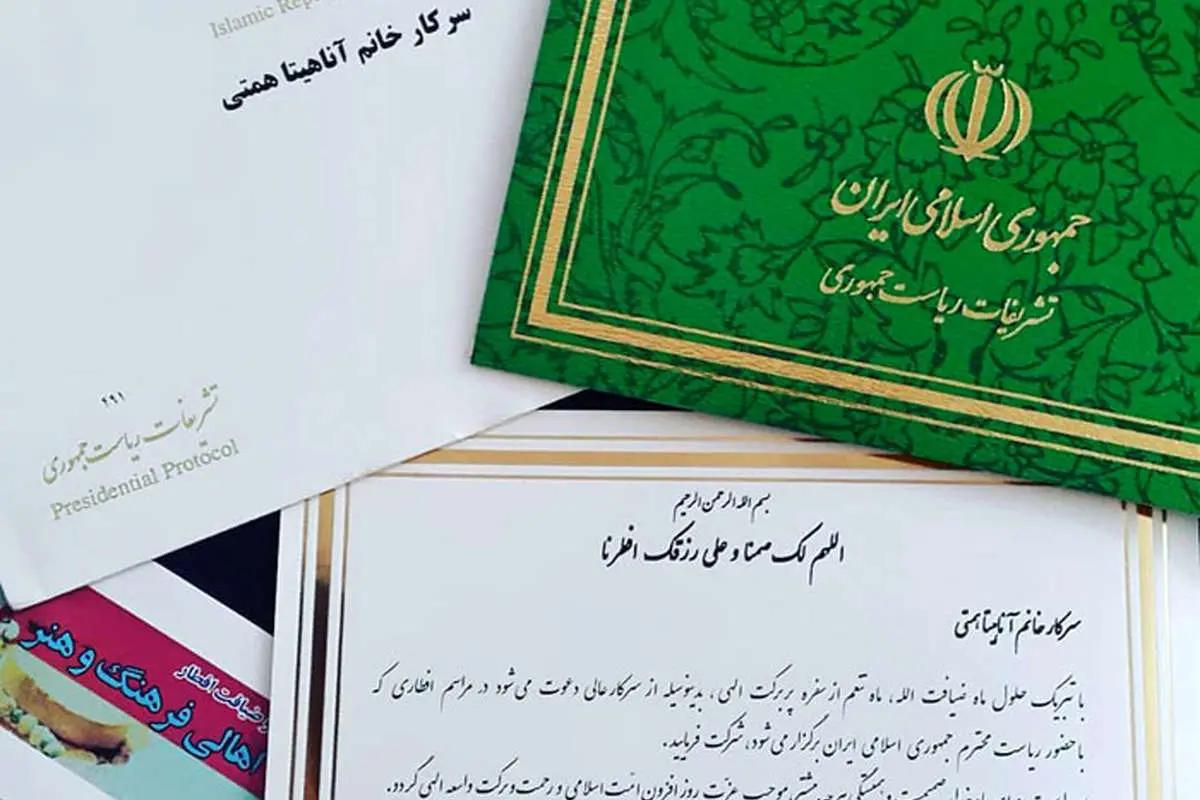 Islamic Rep
سرکار خانم آناهیتا همتی
۲۹۱
تشریفات ریاست جمهوری
Presidential Protocol
جمهوری اسلامی ایران
تشریفات ریاست جمهوری
بسم الله الرحمن الرحیم
اللهم لک صمنا و علی رزقک افطرنا
سرکار خانم آناهیتا همتی
با تبریک حلول ماه ضیافت الله، ماه تنعم از سفره پربرکت الهی، بدینوسیله از سرکار عالی دعوت می‌شود در مراسم افطاری که
با حضور ریاست محترم جمهوری اسلامی ایران برگزار می‌شود، شرکت فرمایید.
صمیمیت و همبستگی هر چه بیشتر، موجب عزت روز افزون امت اسلامی و رحمت و برکت واسعه الهی گردد.
ضیافت افطار
اهالی فرهنگ و هنر